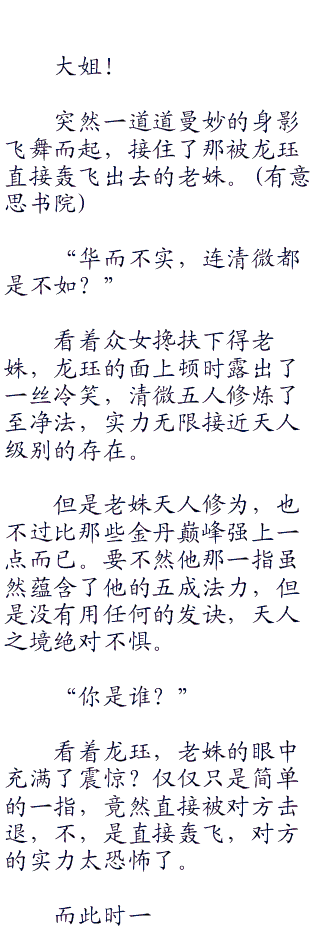 大姐！
突然一道道曼妙的身影
飞舞而起，接住了那被龙珏
直接轰飞出去的老姝。(有意
思书院)
“华而不实，连清微都
是不如？”
看着众女搀扶下得老
姝，龙珏的面上顿时露出了
一丝冷笑，清微五人修炼了
至净法，实力无限接近天人
级别的存在。
但是老姝天人修为，也
不过比那些金丹巅峰强上一
点而已。要不然他那一指虽
然蕴含了他的五成法力，但
是没有用任何的发诀，天人
之境绝对不惧。
“你是谁？”
看着龙珏，老姝的眼中
充满了震惊？仅仅只是简单
的一指，竟然直接被对方击
退，不，是直接轰飞，对方
的实力太恐怖了。
而此时一